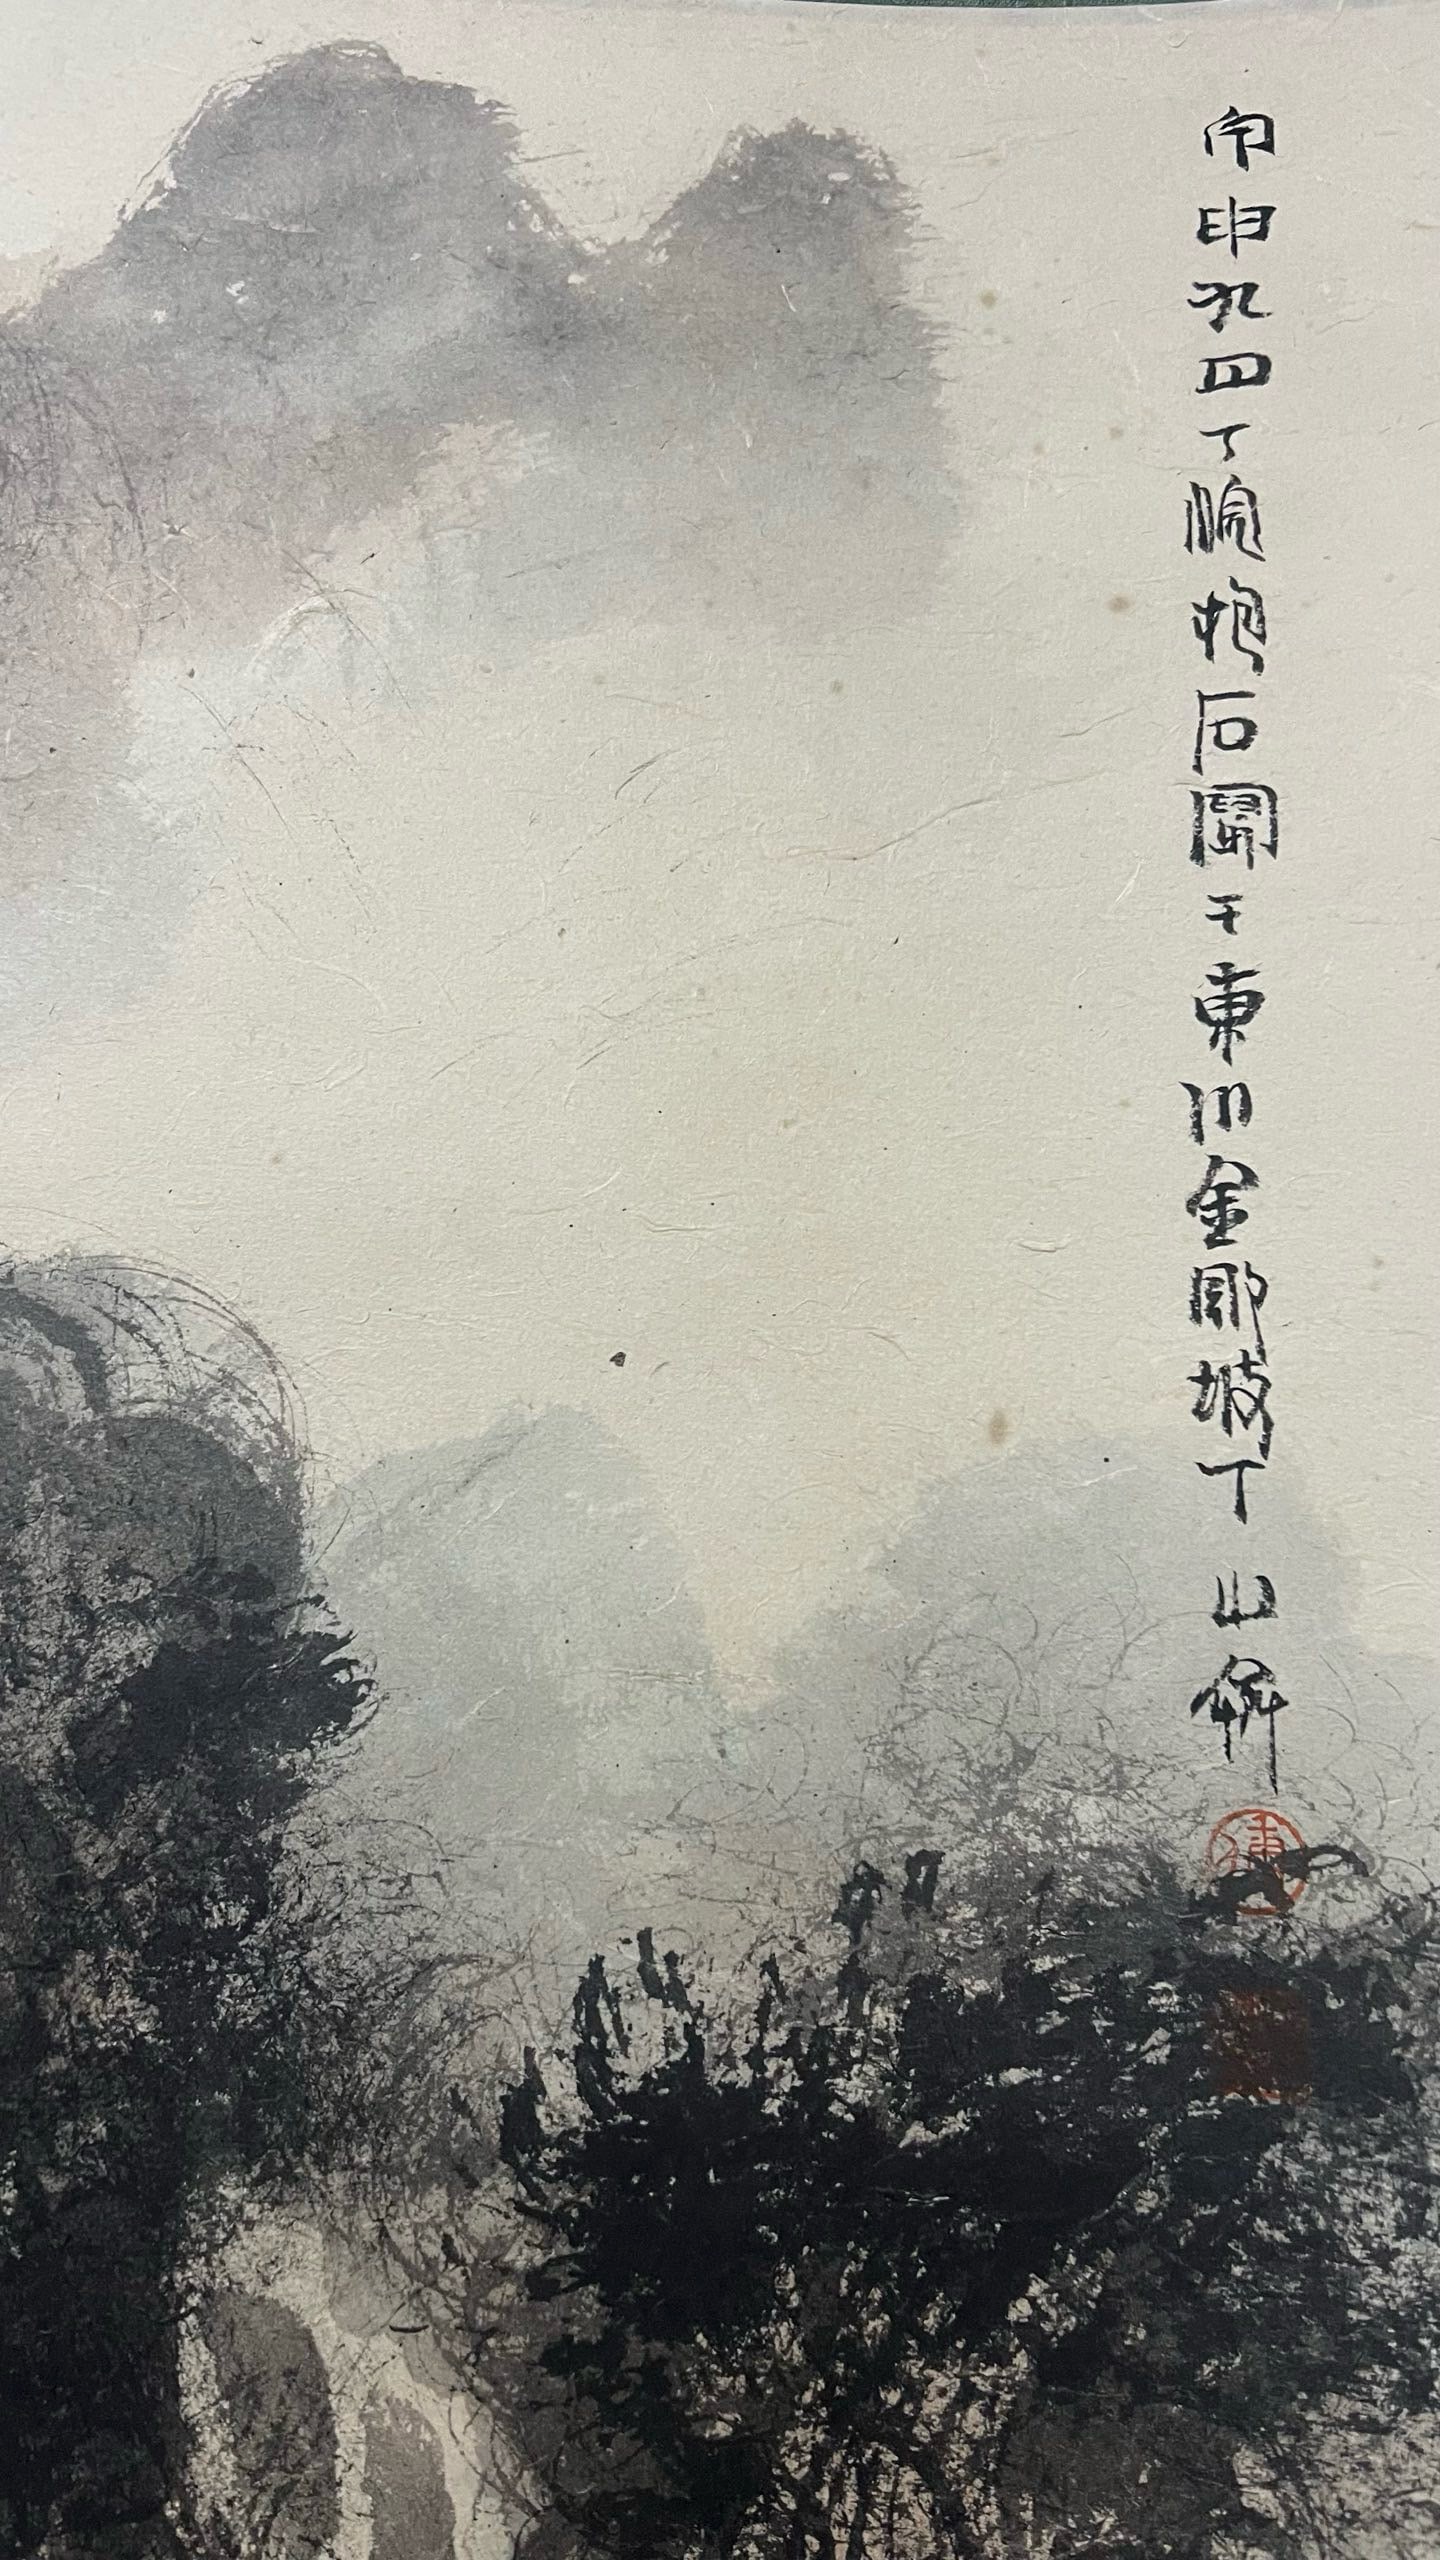 甲申九月下浣抱石寫于東川金剛坡下山齋